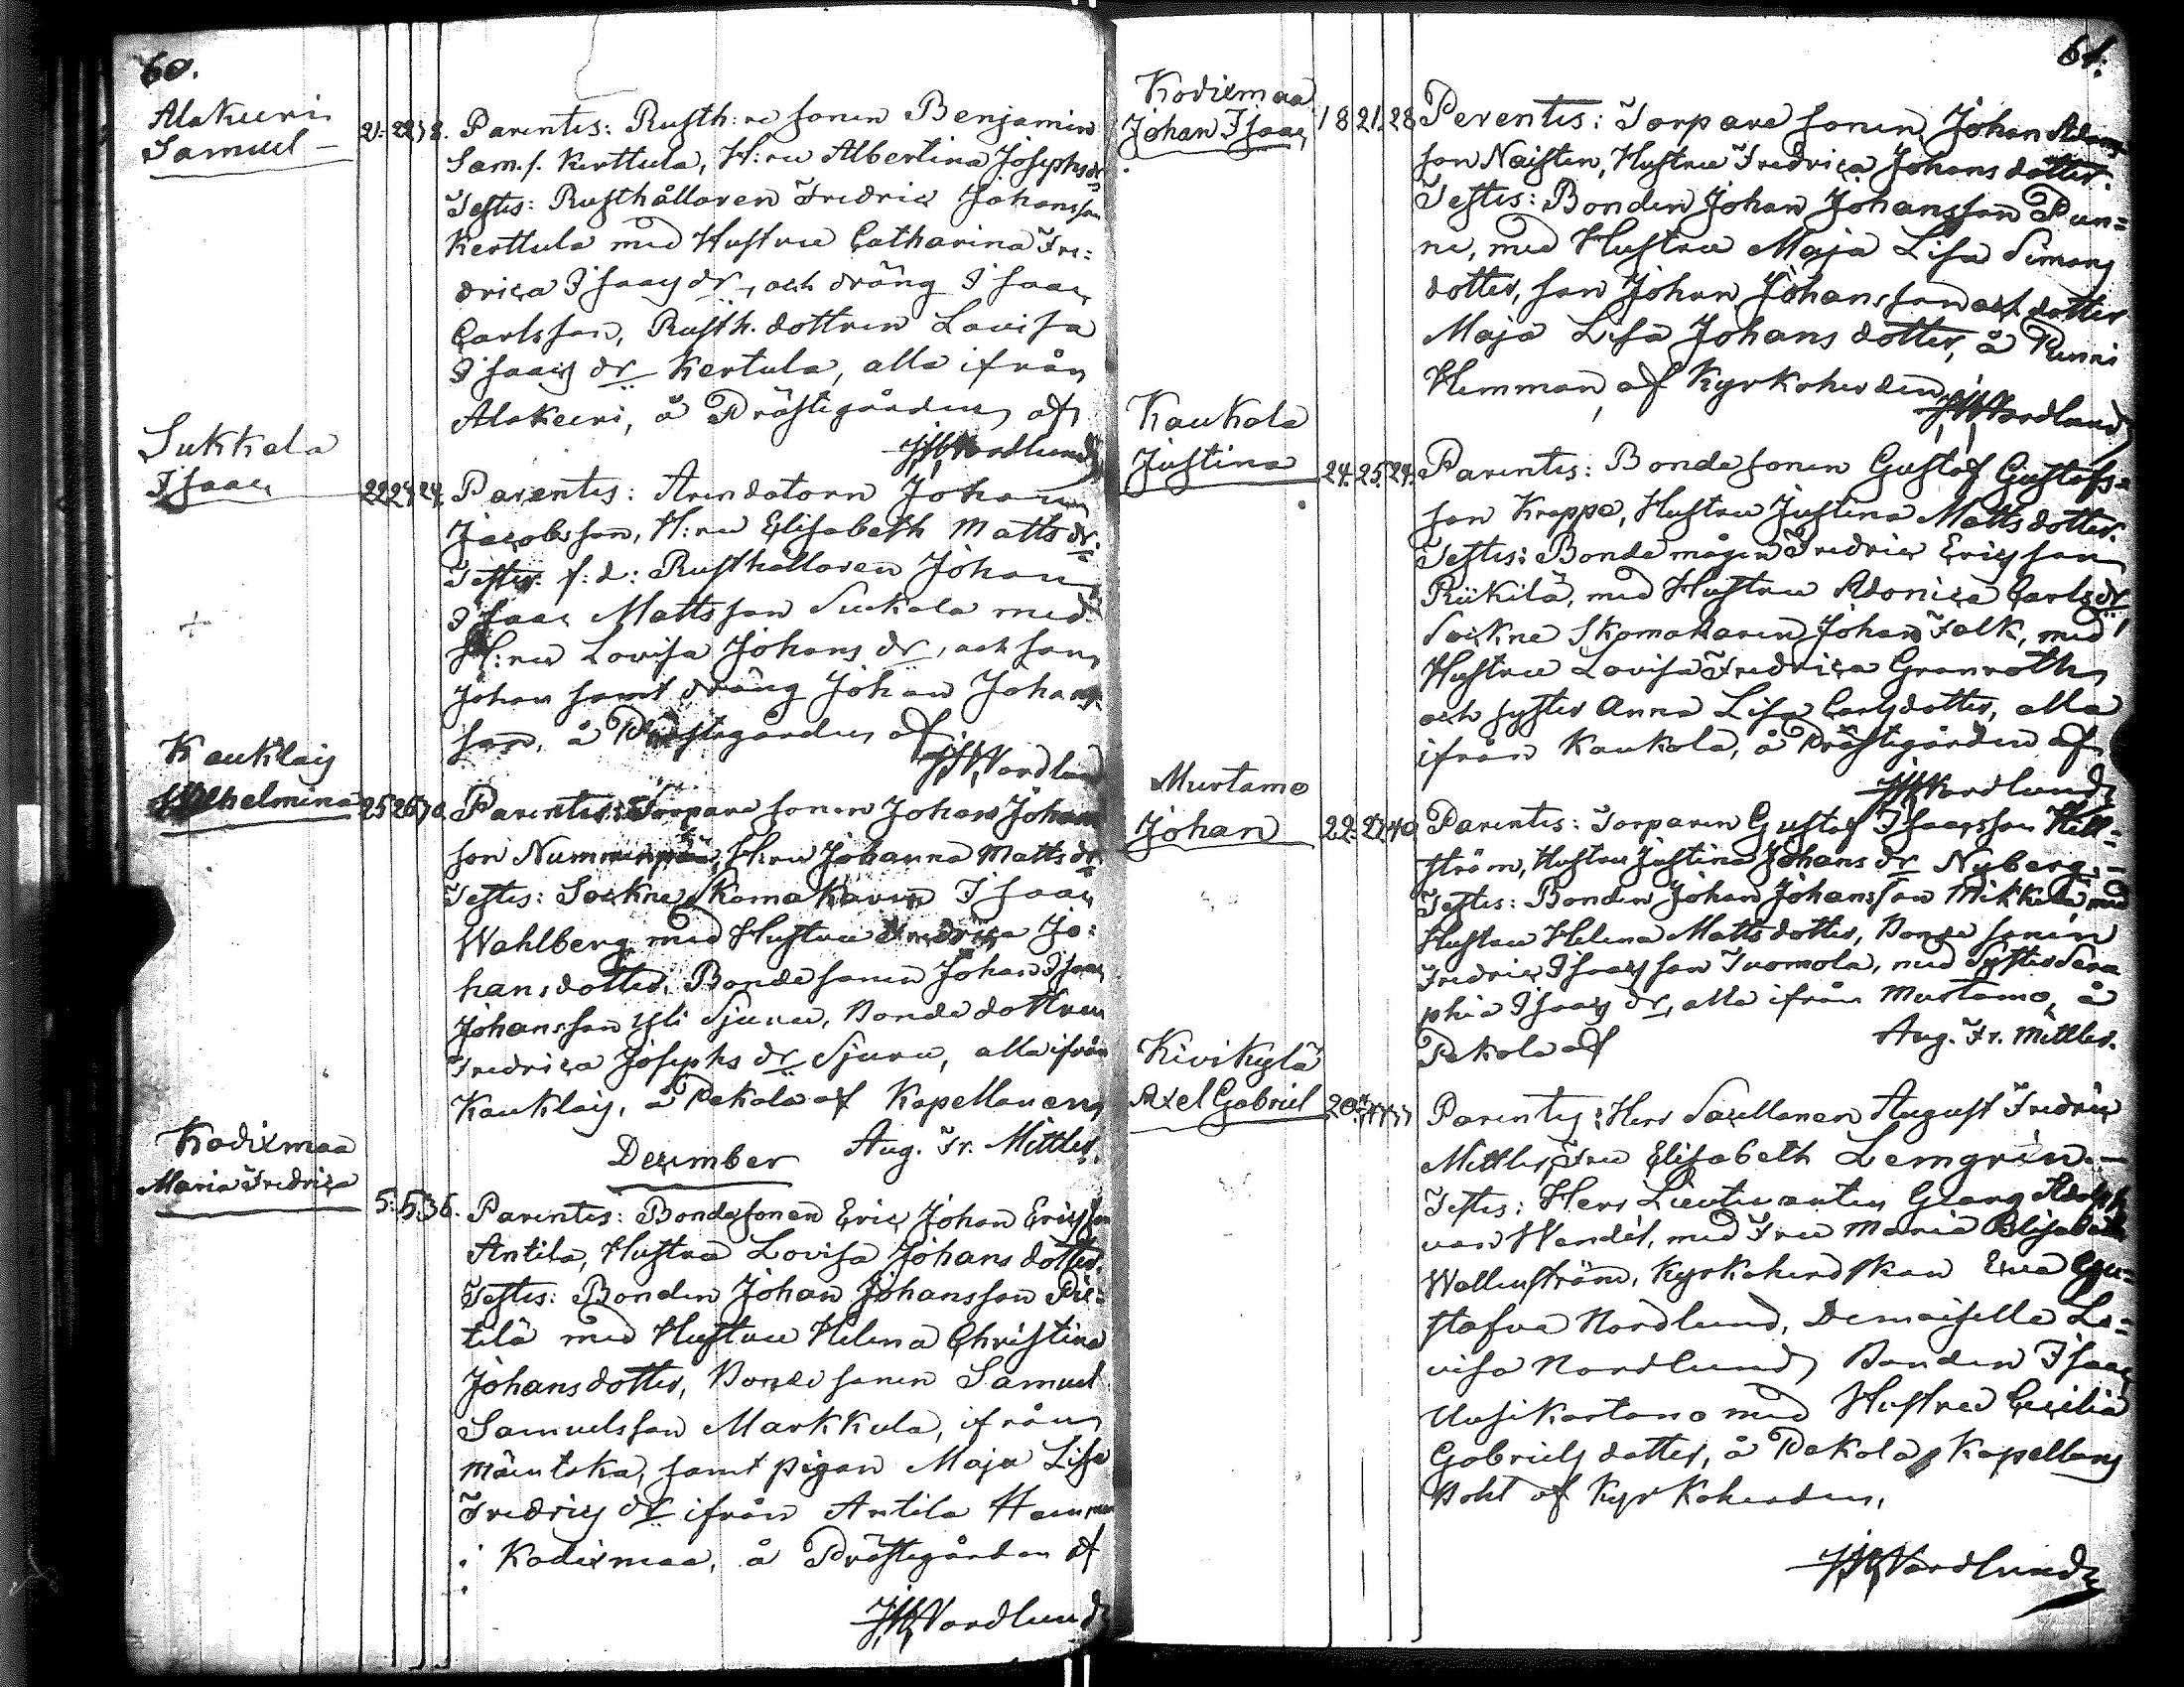 60.
Alakeeri
Samuel
21. 22. 38. Parentes: Rusth:re sonen Benjamin
Sam.s. Kerttula, H:ru Albertina Josephs dr
Testes: Rusthållaren Fredric Johansson
Kerttula med Hustru Catharina Fre:
drica Isaacs dr, och dräng Isaac
Carlsson, Rusth. dottren Lovisa
Isaacs dr Kertula, alla ifrån
Alakeeri, å Prästegården af
Nordlund
Sukkala
Isaac
22. 24. 24. Parentes: Arendatorn Johan
Jacobsson, H:ru Elisabeth Matts dr.
Testes: f:d: Rusthållaren Johan
Isaac Mattsson Sukala med
H:ru Lovisa Johans dr, och son
Johan samt dräng Johan Johans
son, å Prästegården af
Nordlund
Kauklais
Wilhelmina
25. 26. 30. Parentes: Torpare sonen Johan Johans
son Nummenpää, H:ru Johanna Matts dr.
Testes: Sockne Skomakaren Isaac
Wahlberg med Hustru Fredrica Jo:
hansdotter, Bonde sonen Johan Isaac
Johansson Yli Sjuru, Bonde dottren
Fredrica Josephs dr Sjuru, alla ifrån
Kauklais, å Pekola af Kapellanen
Aug. Fr. Mittler.
December
Kodixmaa
Maria Fredrica
5. 5. 36. Parentes: Bondesonen Eric Johan Ericsson
Antila, Hustru Lovisa Johans dotter.
Testes: Bonden Johan Johansson Pie:
tilä med Hustru Helena Christina
Johansdotter, Bonde sonen Samuel
Samuelsson Markkula, ifrån
Mäentaka, samt pigan Maja Lisa
Fredrics dr ifrån Antila Hemman
i Kodixmaa, å Prästegården af
Nordlund
61.
Kodixmaa
Johan Isaac
18. 21. 28. Perentes: Torpare sonen Johan Adams
son Naisten, Hustru Fredrica Johans dotter.
Testes: Bonden Johan Johansson Pun=
ni, med Hustru Maja Lisa Simons
dotter, son Johan Johansson och dotter
Maja Lisa Johans dotter, å Punni
Hemman, af Kyrkoherden
Nordlund
Kaukola
Justina
24. 25. 24. Parentes: Bonde sonen Gustaf Gustafs=
son Krappe, Hustru Justina Matts dotter.
Testes: Bonde mågen Fredric Ericsson
Riikilä, med Hustru Adonica Carls dr,
Sockne Skomakaren Johan Falk, med
Hustru Lovisa Fredrica Granroth,
och syster Anna Lisa Carlsdotter, alla
ifrån Kaukola, å Prästegården af
Nordlund
Murtamo
Johan
22. 27. 40. Parentes: Torparen Gustaf Isaacsson Hell=
ström, Hustru Justina Johans dr Nyberg.
Testes: Bonden Johan Johansson Mikkola med
Hustru Helena Matts dotter, Bonde sonen
Fredric Isaacsson Tuomola, med Syster Sera
phia Isaacs dr, alla ifrån Murtamo, å
Pekola af Aug. Fr. Mittler.
Kivikylä
Axel Gabriel
Parentes: Herr Sacellanen August Fredric
Mittler, Fru Elisabeth Lemgrén.
Testes: Herr Lieutenanten Georg Adolph
von Wendel, med Fru Maria Elisabeth
Wallenström, Kyrkoherdskan Eva Gu=
stafva Nordlund, Demoiselle Lo=
visa Nordlund, Bonden Isaac
Uusikartano med Hustru Cecilia
Gabriels dotter, å Pekola Kapellans
Bohl af Kyrkoherden,
Nordlund